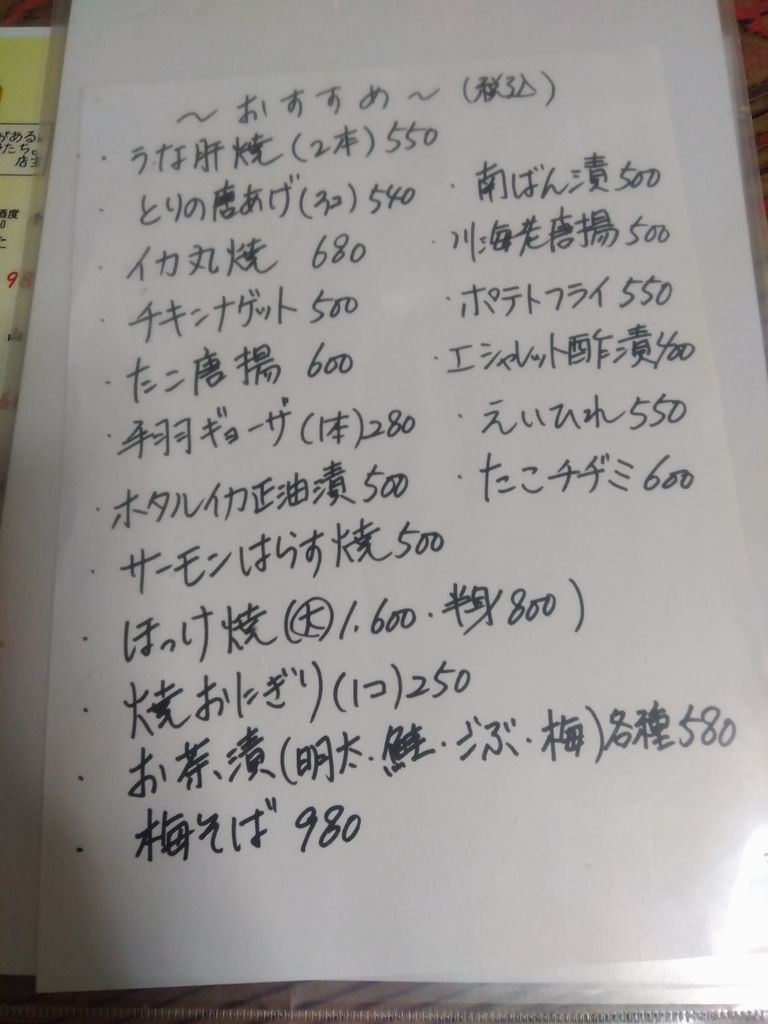 ～おすすめ～(税込)
・うな肝焼(2本)550
・とりの唐あげ(3コ)540
・南ばん漬500
・イカ丸焼 680
・川海老唐揚500
・チキンナゲット500
・ポテトフライ550
・たこ唐揚 600
・エシャレット酢漬400
・手羽ギョーザ(1本)280
・えいひれ550
・ホタルイカ正油漬500
・たこチヂミ600
・サーモンはらす焼500
・ほっけ焼(大1.600・半身800)
・焼おにぎり(1コ)250
・お茶漬(明太・鮭・こぶ・梅)各種580
・梅そば 980
がある
たち。
店主
酒度